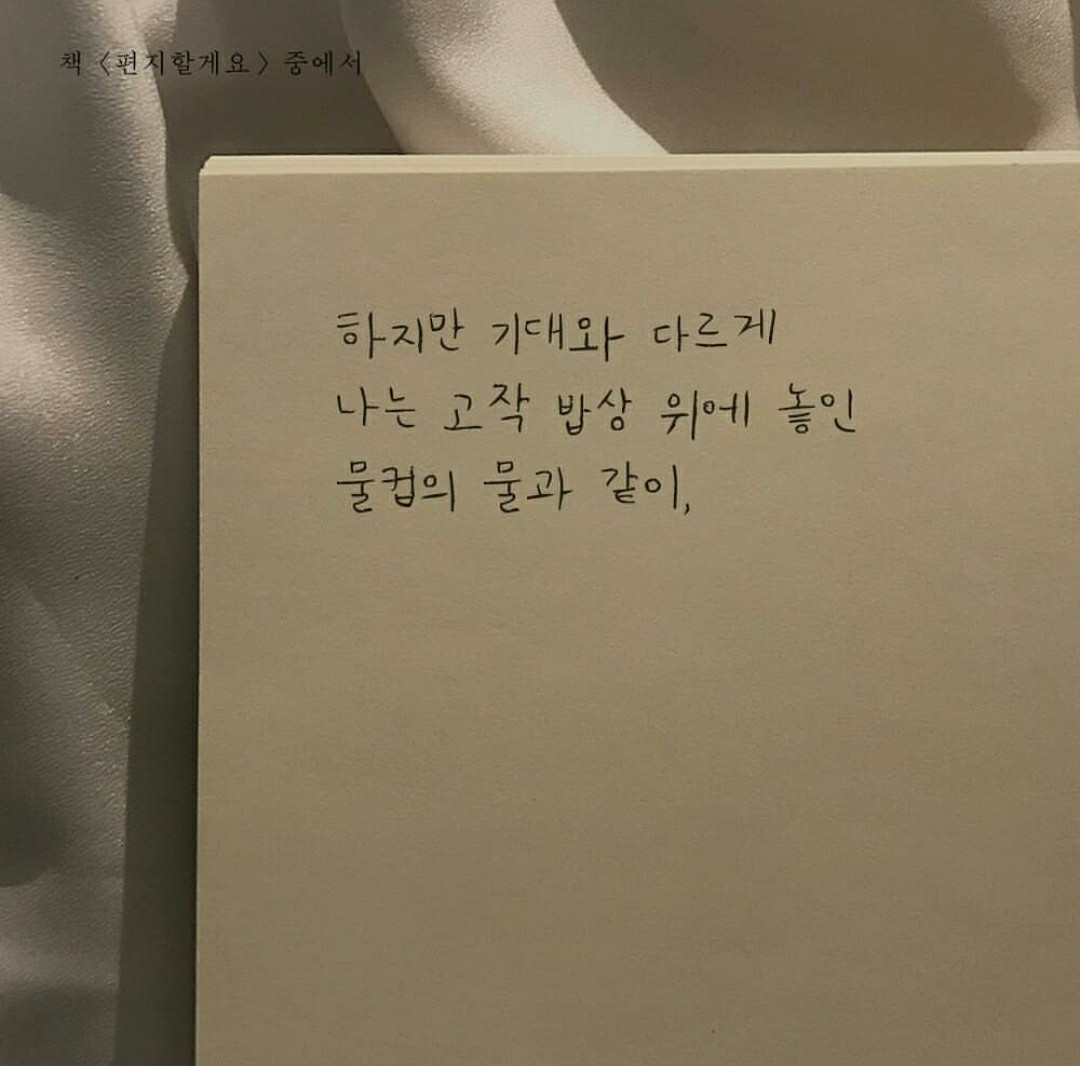 책 〈편지할게요〉 중에서
하지만 기대와 다르게
나는 고작 밥상 위에 놓인
물컵의 물과 같이,